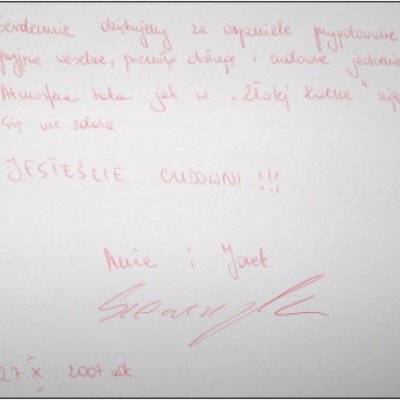 Serdecznie dziękujemy za wspaniale przygotowane
przyjęcie weselne, przemiłą obsługę i cudowne jedzenie
Atmosfera taka jak w "Złotej
się nie zdarza
JESTEŚCIE CUDOWNI !!!
i Jacek
27. X. 2007